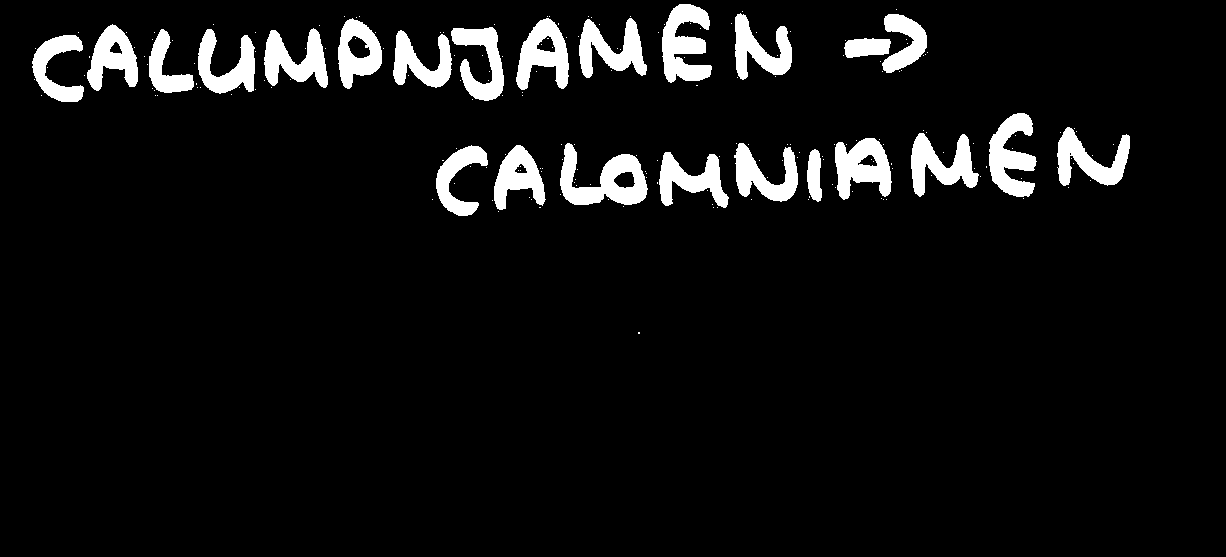 CALUMPNJAMEN →
CALOMNIAMEN